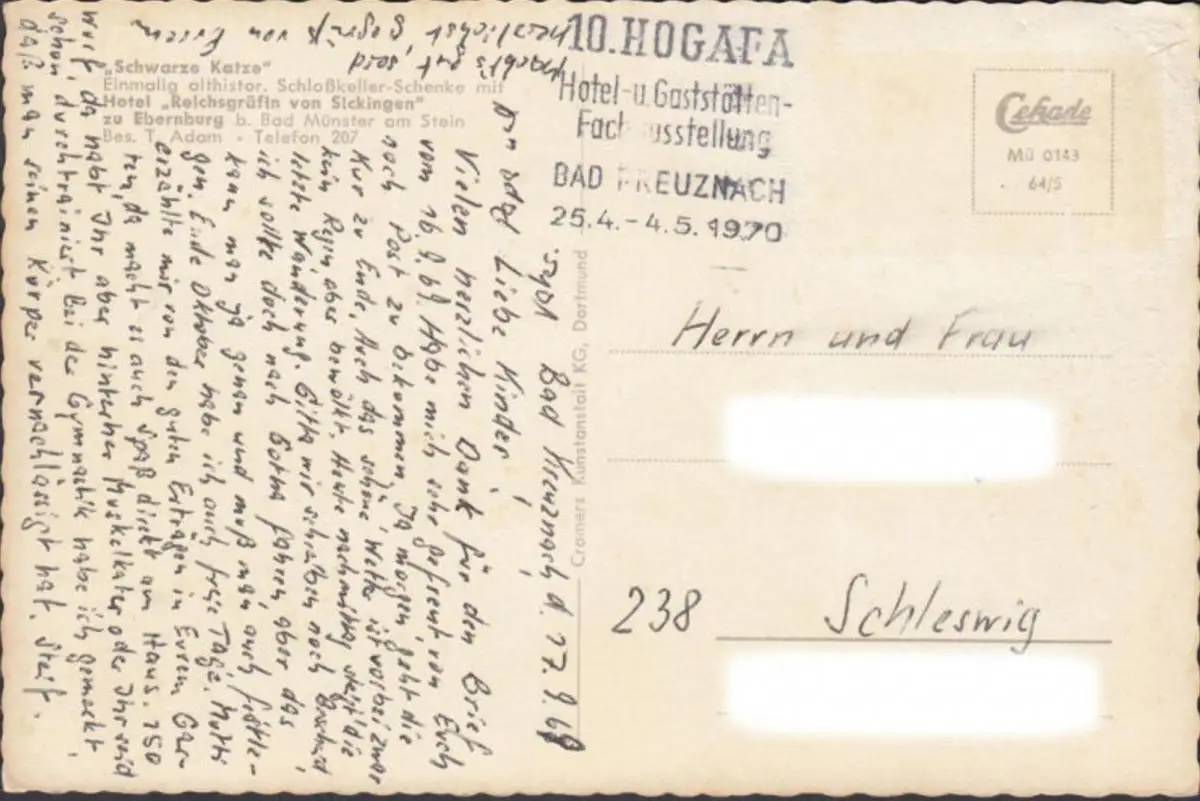 „Schwarze Katze"
Einmalig althistor. Schloßkeller-Schenke mit
Hotel „Reichsgräfin von Sickingen"
zu Ebernburg b. Bad Münster am Stein
Bes. T. Adam - Telefon 207
10. HOGAFA
Hotel-u. Gaststätten-
Fachausstellung
BAD KREUZNACH
25.4. - 4.5. 1970
Cekade
Mü 0143
64/S
Cramers Kunstanstalt KG, Dortmund
Bad Kreuznach d. 17.9.69
Liebe Kinder!
Vielen herzlichen Dank für den Brief
vom 16.9.69. Habe mich sehr gefreut von Euch
noch Post zu bekommen. Ja morgen geht die
Kur zu Ende. Auch das schöne Wetter ist vorbei zwar
kein Regen aber bewölkt. Heute nachmittag steigt die
letzte Wanderung. Gitta wir schreiben nach
ich sollte doch nach Gotha fahren, aber das
kann man ja genau und muß man auch festle-
gen. Ende Oktober habe ich auch freie Tage. Mutti
erzählte mir von den guten Erträgen in Eurem Gar-
ten, da macht es auch Spaß direkt am Haus. 150
Wurf, da habt Ihr aber hinterher Muskelkater oder Ihr seid
schon durchtrainiert. Bei der Gymnastik habe ich gemerkt,
daß man seinen Körper vernachlässigt hat. Steif.
Macht's gut seid
herzlichst gegrüßt von Eurem
Herrn und Frau
238 Schleswig